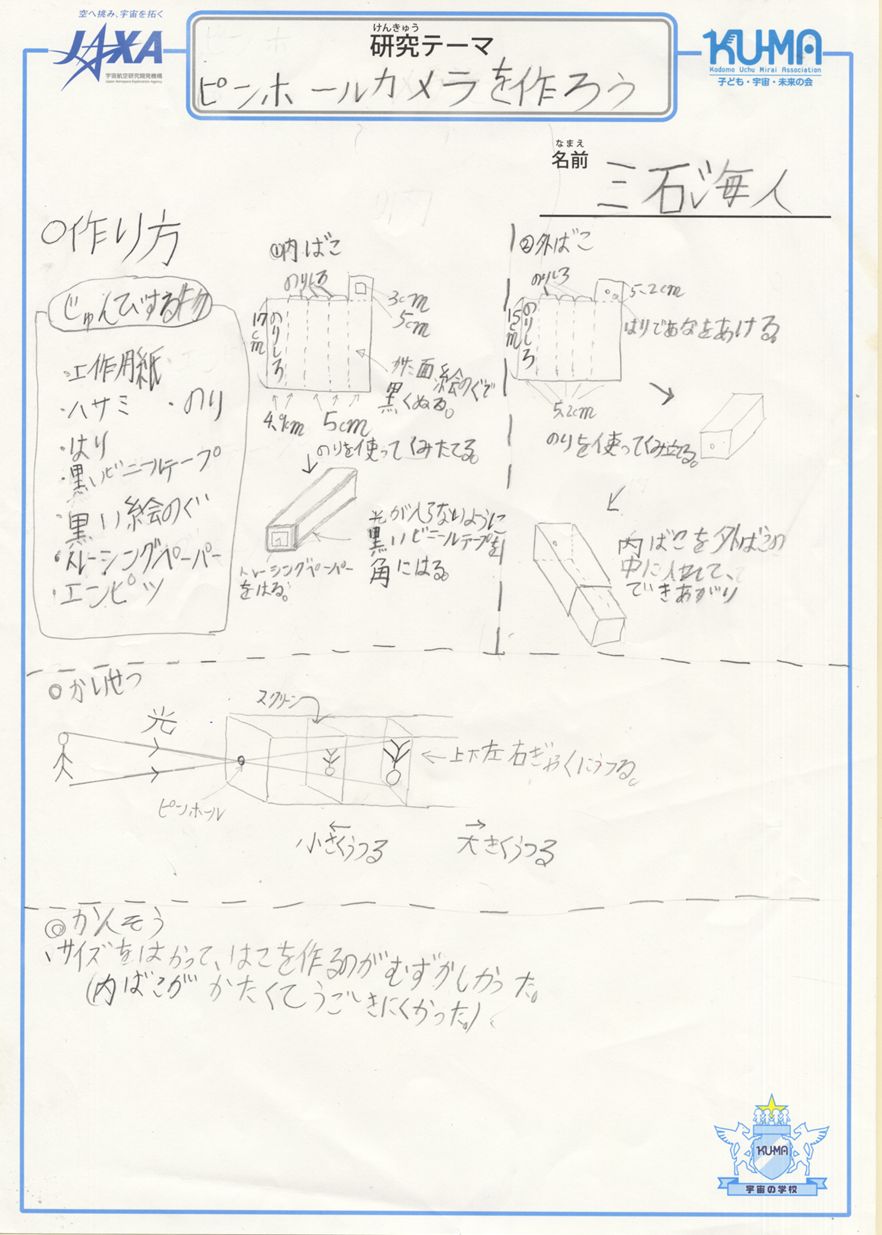 空へ挑み、宇宙を拓く
JAXA
宇宙航空研究開発機構
Japan Aerospace Exploration Agency
けんきゅう
研究テーマ
ピンホールカメラを作ろう
KU-MA
Kodomo Uchu Mirai Association
子ども・宇宙・未来の会
なまえ
名前
三石海人
○作り方
じゅんびするもの
・工作用紙
・ハサミ ・のり
・はり
・黒いビニールテープ
・黒い絵のぐ
・トレーシングペーパー
・エンピツ
①内ばこ
のりしろ
3cm
5cm
17cm
のりしろ
4.9cm
5cm
面
絵のぐで
黒くぬる。
のりを使ってくみたてる。
トレーシングペーパー
をはる。
光が入らないように
黒いビニールテープを
角にはる。
②外ばこ
のりしろ
5.2cm
はりであなをあける。
15cm
のりしろ
5.2cm
のりを使ってくみ立てる。
内ばこを外ばこの
中に入れて、
できあがり
○かいせつ
光
スクリーン
ピンホール
上下左右ぎゃくにうつる。
←
小さくうつる
→
大きくうつる
◎かんそう
・サイズをはかって、はこを作るのがむずかしかった。
(内ばこが かたくてうごきにくかった。)
KU-MA
宇宙の学校